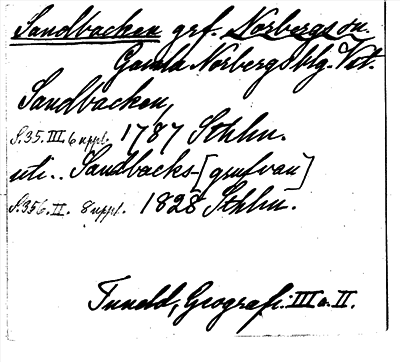 Sandbacken grf. Norbergs sn.
Gamla Norbergs blg. Vstm.
Sandbacken,
S. 35. III. 6 uppl. 1787 Sthlm.
uti.. Sandbacks-[grufvan]
S. 356. II. 8 uppl. 1828 Sthlm.
Tuneld, Geografi. III o. II.